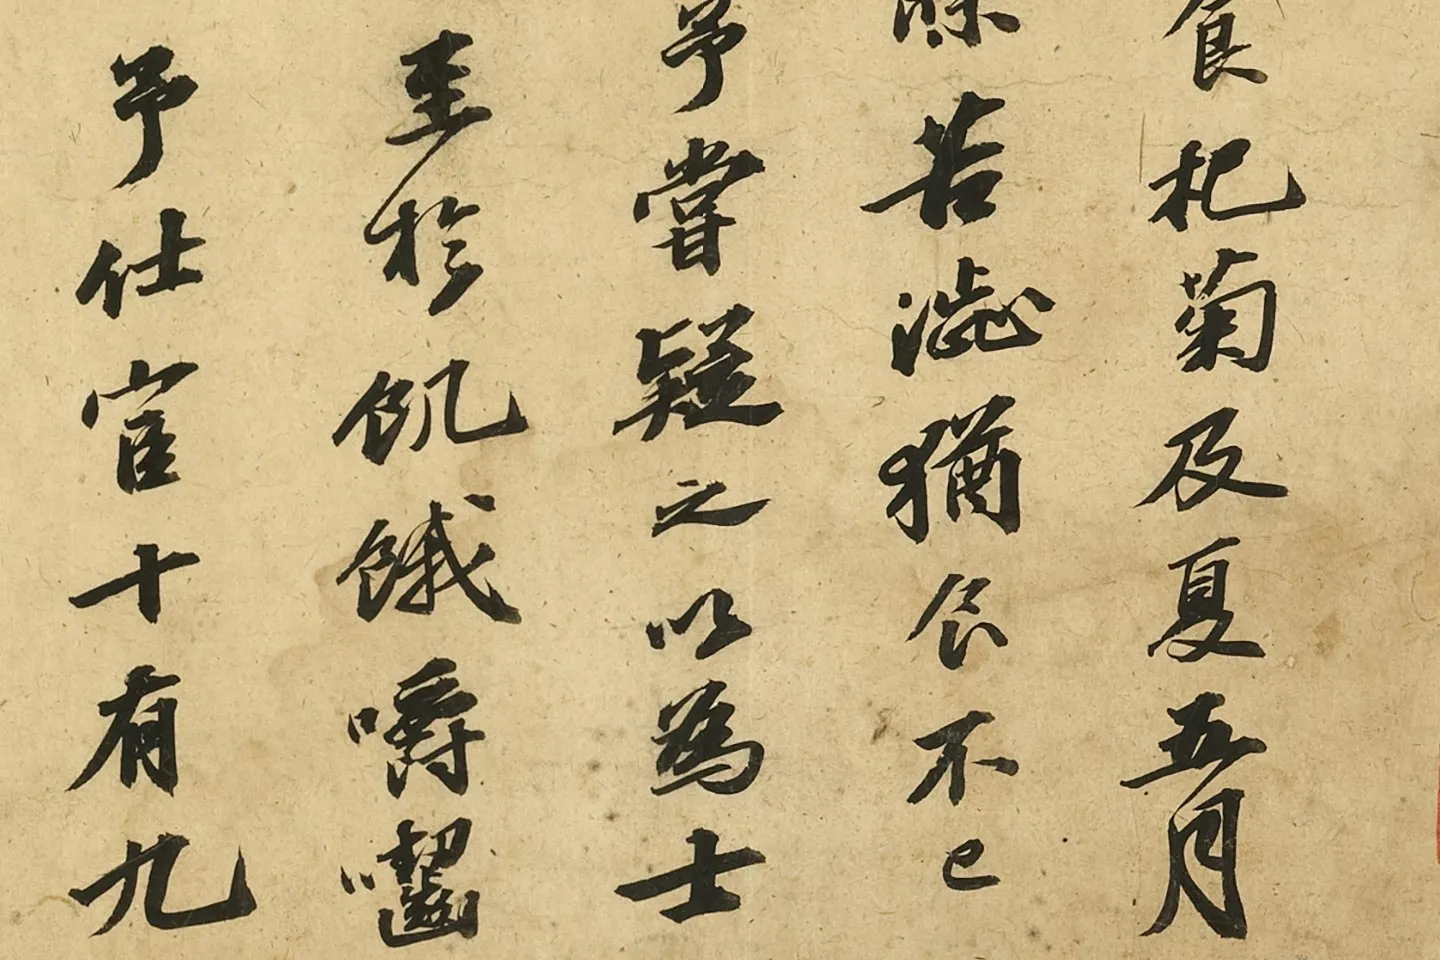 食杞菊及夏五月
苦澁猶食不已
予嘗疑之以為士
至於飢餓嚼齧
予仕宦十有九